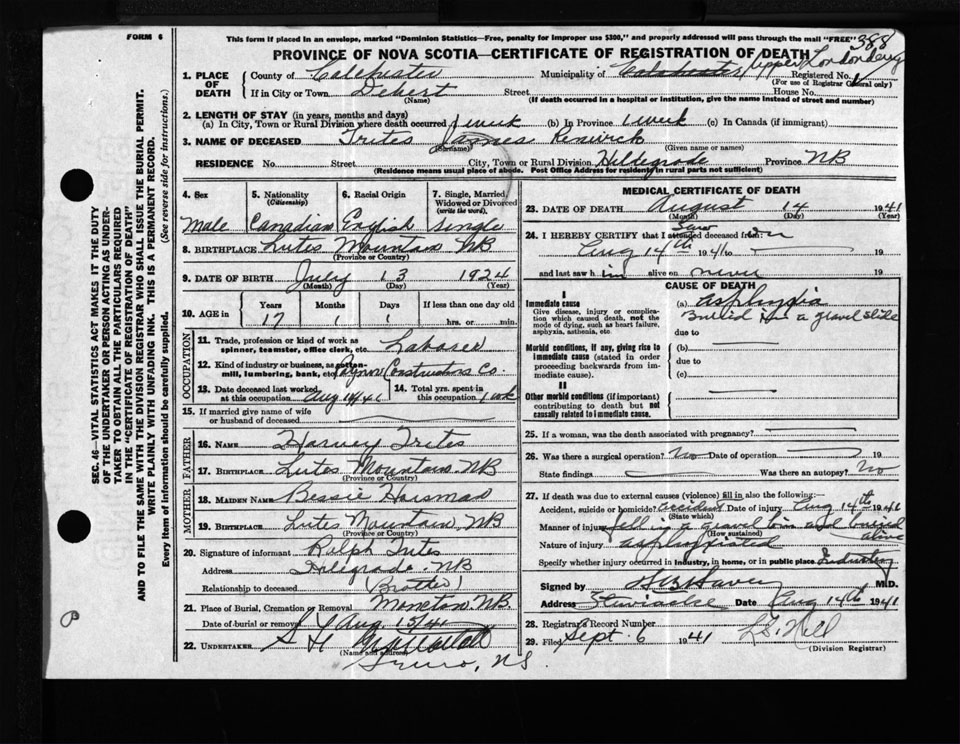 FORM 6
This form if placed in an envelope, marked "Dominion Statistics—Free, penalty for improper use $300," and properly addressed will pass through the mail "FREE"
388
PROVINCE OF NOVA SCOTIA—CERTIFICATE OF REGISTRATION OF DEATH
Upper Londonderry
1. PLACE OF DEATH County of Colchester Municipality of Colchester Registered No.
(For use of Registrar General only)
If in City or Town Debert Street House No.
(Name) (If death occurred in a hospital or institution, give the name instead of street and number)
2. LENGTH OF STAY (in years, months and days)
(a) In City, Town or Rural Division where death occurred 1 week (b) In Province 1 week (c) In Canada (if immigrant)
3. NAME OF DECEASED Trites James Renwick
(Surname) (Given name or names)
RESIDENCE No. Street City, Town or Rural Division Hildegrade Province NB
(Residence means usual place of abode. Post Office Address for residents in rural parts not sufficient)
4. Sex 5. Nationality (Citizenship) 6. Racial Origin 7. Single, Married, Widowed or Divorced (write the word)
Male Canadian English Single
8. BIRTHPLACE Lutes Mountain NB
(Province or Country)
9. DATE OF BIRTH July 13 1924
(Month) (Day) (Year)
10. AGE in Years Months Days If less than one day old
17 1 1 hrs. or min.
OCCUPATION
11. Trade, profession or kind of work as spinner, teamster, office clerk, etc. Laborer
12. Kind of industry or business, as cotton-mill, lumbering, bank, etc. Constructions Co.
13. Date deceased last worked at this occupation Aug 14/41 14. Total yrs. spent in this occupation 1 wk
15. If married give name of wife or husband of deceased
FATHER
16. NAME Harvey Trites
17. BIRTHPLACE Lutes Mountain NB
(Province or Country)
MOTHER
18. MAIDEN NAME Bessie
19. BIRTHPLACE Lutes Mountain, NB
(Province or Country)
20. Signature of informant Ralph Trites
Address NB
Relationship to deceased (Brother)
21. Place of Burial, Cremation or Removal Moncton NB.
Date of burial or removal Aug. 15/41
22. UNDERTAKER
(Name and address)
Truro, N.S.
MEDICAL CERTIFICATE OF DEATH
23. DATE OF DEATH August 14 1941
(Month) (Day) (Year)
24. I HEREBY CERTIFY that I attended deceased from:
Saw
Aug 14th 1941 to 19
and last saw him alive on never 19
CAUSE OF DEATH
I
Immediate cause
Give disease, injury or complication which caused death, not the mode of dying, such as heart failure, asphyxia, asthenia, etc.
(a) Asphyxia
Buried in a gravel slide
due to
Morbid conditions, if any, giving rise to immediate cause (stated in order proceeding backwards from immediate cause).
(b)
due to
(c)
II
Other morbid conditions (if important) contributing to death but not causally related to immediate cause.
25. If a woman, was the death associated with pregnancy?
26. Was there a surgical operation? No Date of operation 19
State findings Was there an autopsy? No
27. If death was due to external causes (violence) fill in also the following:
Accident, suicide or homicide? accident Date of injury Aug 14th 1941
(State which)
Manner of injury fell in a gravel and buried alive
(How sustained)
Nature of injury asphyxiated
Specify whether injury occurred in Industry, in home, or in public place Industry
Signed by M.D.
Address Stewiacke Date Aug 14th 1941
28. Registrar's Record Number
29. Filed Sept. 6 1941 Hill
(Division Registrar)
SEC. 46—VITAL STATISTICS ACT MAKES IT THE DUTY
OF THE UNDERTAKER OR PERSON ACTING AS UNDER-
TAKER TO OBTAIN ALL THE PARTICULARS REQUIRED
IN THE "CERTIFICATE OF REGISTRATION OF DEATH"
AND TO FILE THE SAME WITH THE DIVISION REGISTRAR WHO SHALL ISSUE THE BURIAL PERMIT.
WRITE PLAINLY WITH UNFADING INK. THIS IS A PERMANENT RECORD.
Every item of information should be carefully supplied. (See reverse side for instructions.)